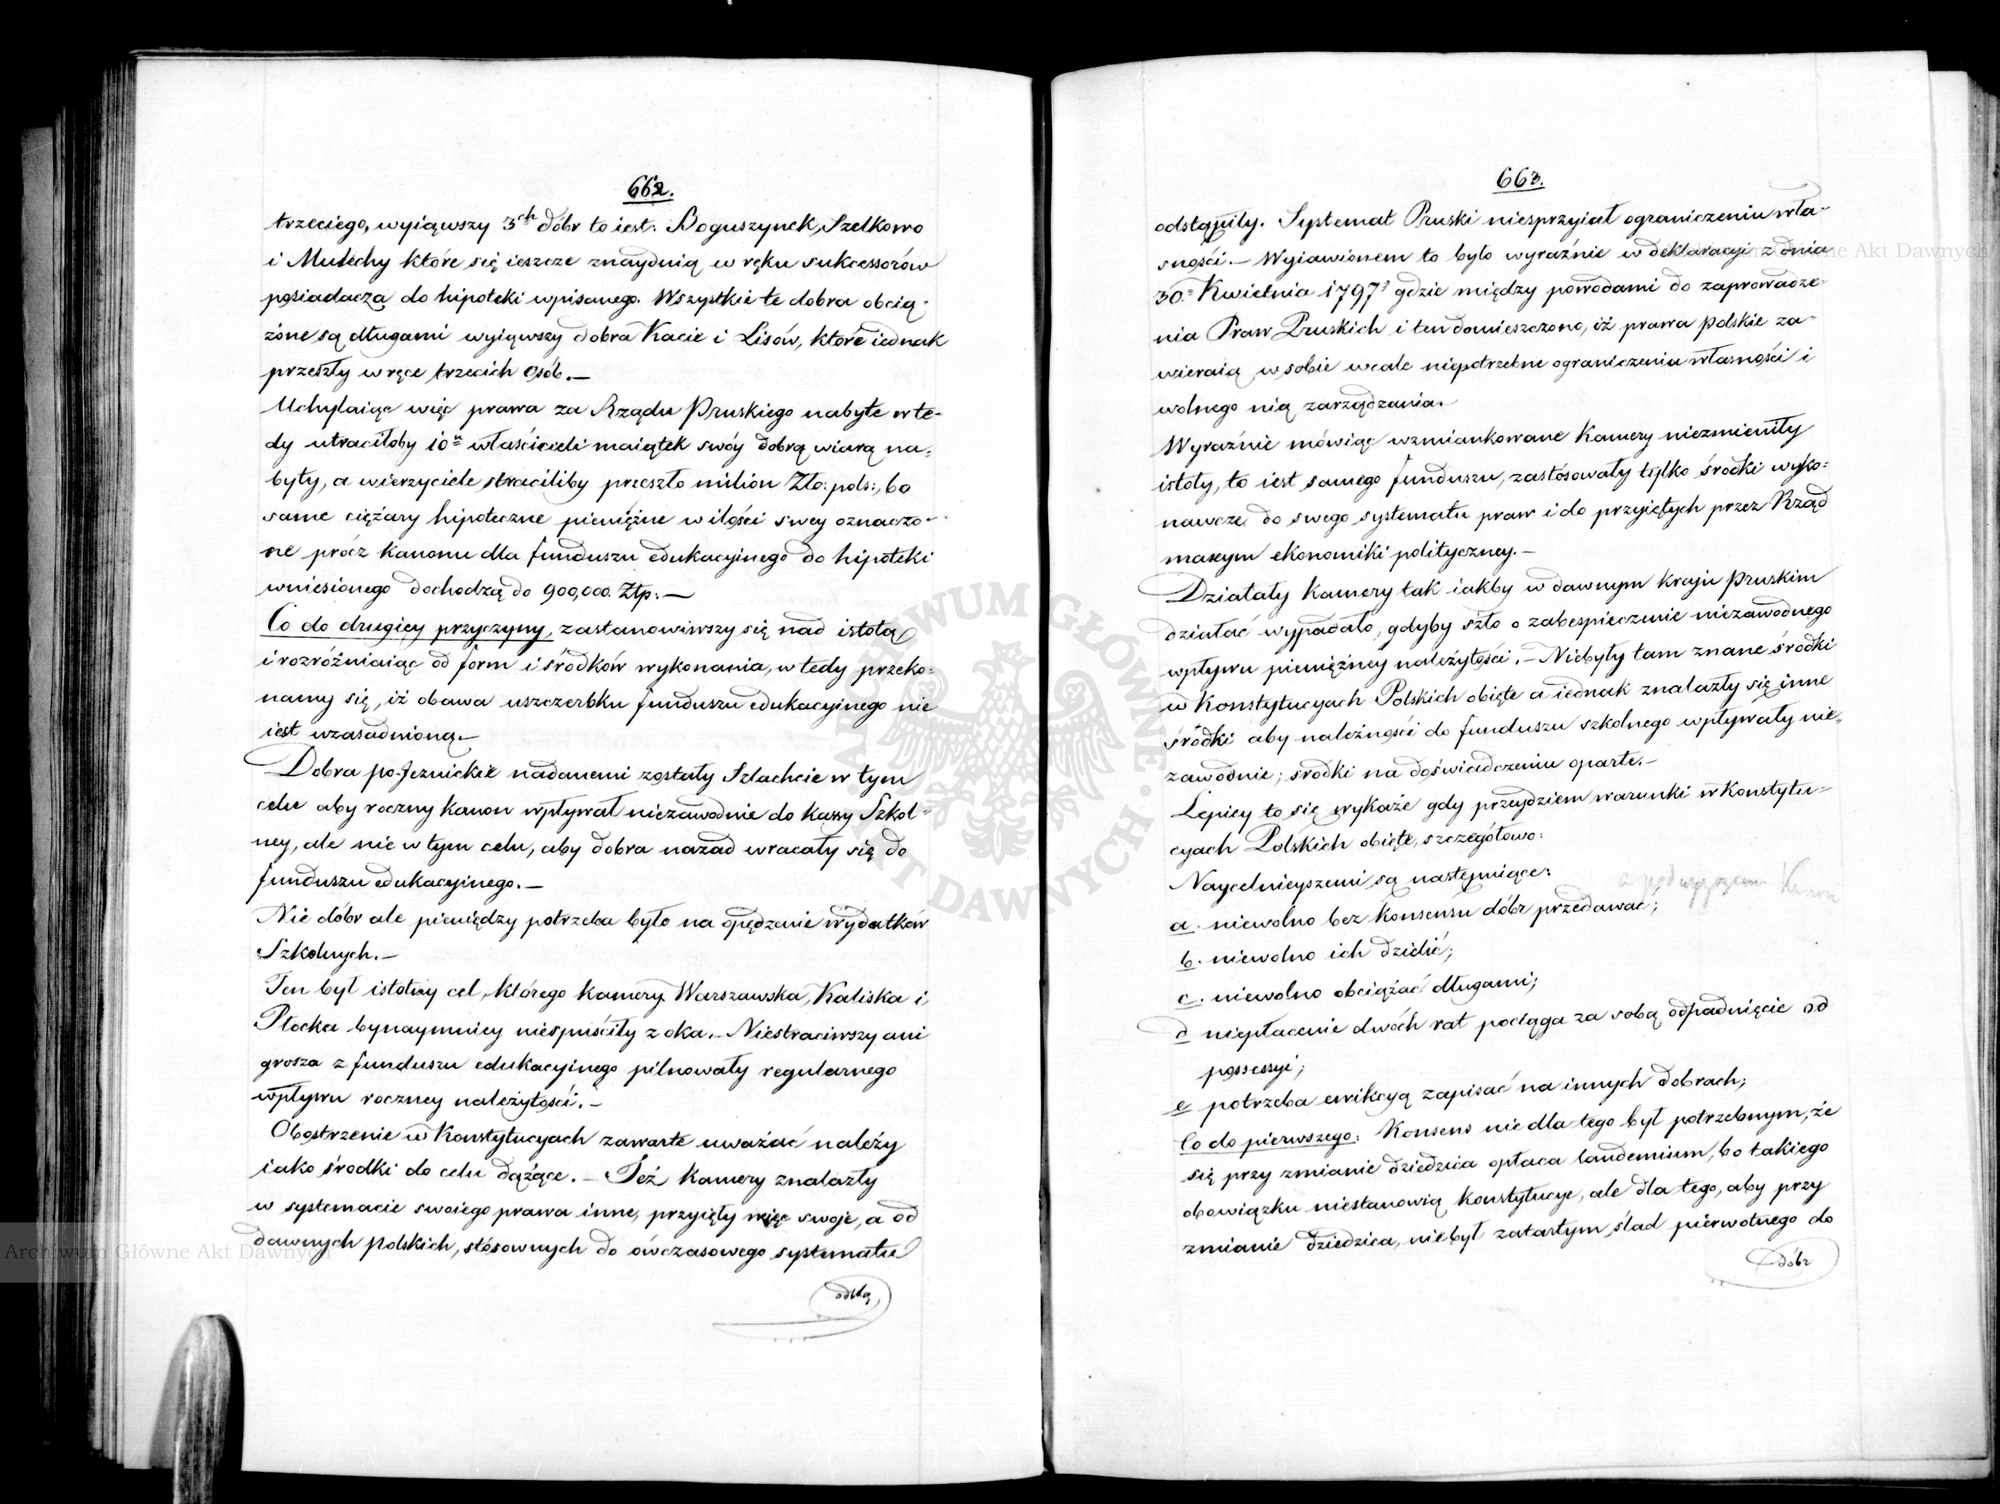 662.
trzeciego, wyiąwszy 3ch dóbr to iest: Boguszynek, Szelkowo
i Mulechy które się ieszcze znaydują w ręku sukcessorów
posiadacza do hipoteki wpisanego. Wszystkie te dobra obcią-
żone są długami wyiąwszy dobra Kacie i Lisów, które iednak
przeszły w ręce trzecich osób.—
Uchylaiąc więc prawa za Rządu Pruskiego nabyte wte-
dy utraciłoby 10u właścicieli maiątek swóy dobrą wiarą na-
byty, a wierzyciele straciliby przeszło milion Zło: pols:, bo
same ciężary hipoteczne pieniężne w ilości swey oznaczo-
ne prócz kanonu dla funduszu edukacyinego do hipoteki
wniesionego dochodzą do 900,000. Złp:.—
Co do drugiey przyczyny, zastanowiwszy się nad istotą
i rozróżniaiąc od form i śrődków wykonania, w tedy przeko-
namy się, iż obawa uszczerbku funduszu edukacyinego nie
iest uzasadnioną.—
Dobra po-Jeznickie nadanemi zostały Szlachcie w tym
celu aby roczny kanon wpływał niezawodnie do kassy Szkol-
ney, ale nie w tym celu, aby dobra nazad wracały się do
funduszu edukacyinego.—
Nie dóbr ale pieniędzy potrzeba było na opędzenie wydatków
Szkolnych.—
Ten był istotny cel, którego kamery Warszawska, Kaliska i
Płocka bynaymniey niespuściły z oka.— Niestraciwszy ani
grosza z funduszu edukacyinego pilnowały regularnego
wpływu roczney należytości.—
Obostrzenie w Konstytucyach zawarte uważać należy
iako środki do celu dążące.— Też Kamery znalazły
w systemacie swoiego prawa inne, przyięły więc swoje, a od
dawnych polskich, stósownych do ówczasowego systematu
odstą
663.
odstąpiły. Systemat Pruski niesprzyiał ograniczeniu wła-
sności.— Wyiawionem to było wyraźnie w deklaracyi z dnia
30o Kwietnia 1797o gdzie między powodami do zaprowadze-
nia Praw Pruskich i ten domieszczono, iż prawa polskie za-
wieraią w sobie wcale niepotrzebne ograniczenia własności i
wolnego nią zarządzania.
Wyraźnie mówiąc wzmiankowane Kamery niezmieniły
istoty, to iest samego funduszu, zastósowały tylko środki wyko-
nawcze do swego systematu praw i do przyiętych przez Rząd
maxym ekonomiki polityczney.—
Działały Kamery tak iakby w dawnym kraju pruskim
działać wypadało, gdyby szło o zabespieczenie niezawodnego
wpływu pieniężney należytości.— Niebyły tam znane środki
w Konstytucyach Polskich obięte a iednak znalazły się inne
środki aby należności do funduszu szkolnego wpływały nie-
zawodnie; srodki na doświadczeniu oparte.—
Lepiey to się wykaże gdy przeydziem warunki w Konstytu-
cyach Polskich obięte, szczegółowo:
Naycelnieyszemi są następuiące:
a. niewolno bez konsensu dóbr przedawać;
b. niewolno ich dzielić;
c. niewolno obciążać długami;
d niepłacenie dwóch rat pociąga za sobą odpadnięcie od
possessyi;
e potrzeba ewikcyą zapisać na innych dobrach;
Co do pierwszego: Konsens nie dla tego był potrzebnym, że
się przy zmianie dziedzica opłaca laudemium, bo takiego
obowiązku niestanowią Konstytucye, ale dla tego, aby przy
zmianie dziedzica, nie był zatartym ślad pierwotnego do
dóbr
ARCHIWUM GŁÓWNE AKT DAWNYCH
Archiwum Główne Akt Dawnych
Główne Akt Dawnych